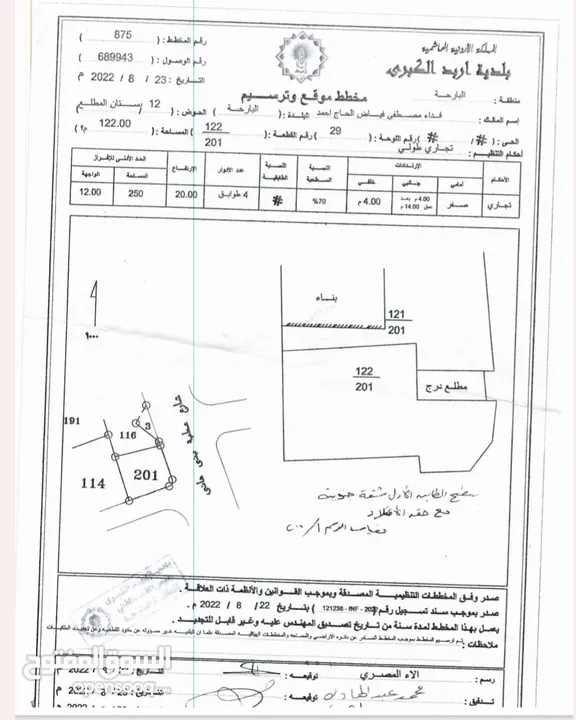 المملكة الأردنية الهاشمية
بلدية اربد الكبرى
رقم المخطط : ( 875 )
رقم الوصول : ( 689943 )
التاريخ : 23 / 8 / 2022 م
مخطط موقع وترسيم
منطقة : البارحة
إسم المالك : فداء مصطفى فياض الحاج احمد البلدة : ( البارحة ) الحوض : ( 12 بستان المطلع )
الحي : ( # / # ) رقم اللوحة : ( 29 ) رقم القطعة : ( 122 / 201 ) المساحة : ( 122.00 م٢ )
أحكام التنظيم : تجاري طولي
الأحكام
الارتدادات
أمامي
جانبي
خلفي
النسبة السطحية
النسبة الطابقية
عدد الادوار
الارتفاع
الحد الأدنى للإفراز
المساحة
الواجهة
تجاري
صفر
4.00 م بعد عمق 14.00 م
4.00 م
70%
#
4 طوابق
20.00
250
12.00
بناء
121
201
122
201
مطلع درج
١٠٠٠
191
116
3
114
201
مسطح الطابق الأول شقة
مع
صدر وفق المخططات التنظيمية المصدقة وبموجب القوانين والأنظمة ذات العلاقة .
صدر بموجب سند تسجيل رقم ( 121238 - INF - 202 ) بتاريخ 22 / 8 / 2022 م .
يعمل بهذا المخطط لمدة سنة من تاريخ تصديق المهندس عليه وغير قابل للتجديد .
ملاحظات :
رسم : الاء المصري توقيعه : 8 / 2022 م
تدقيق : محمد عبد الهادي توقيعه : 8 / 2022 م
السوق المفتوح
opensooq.com